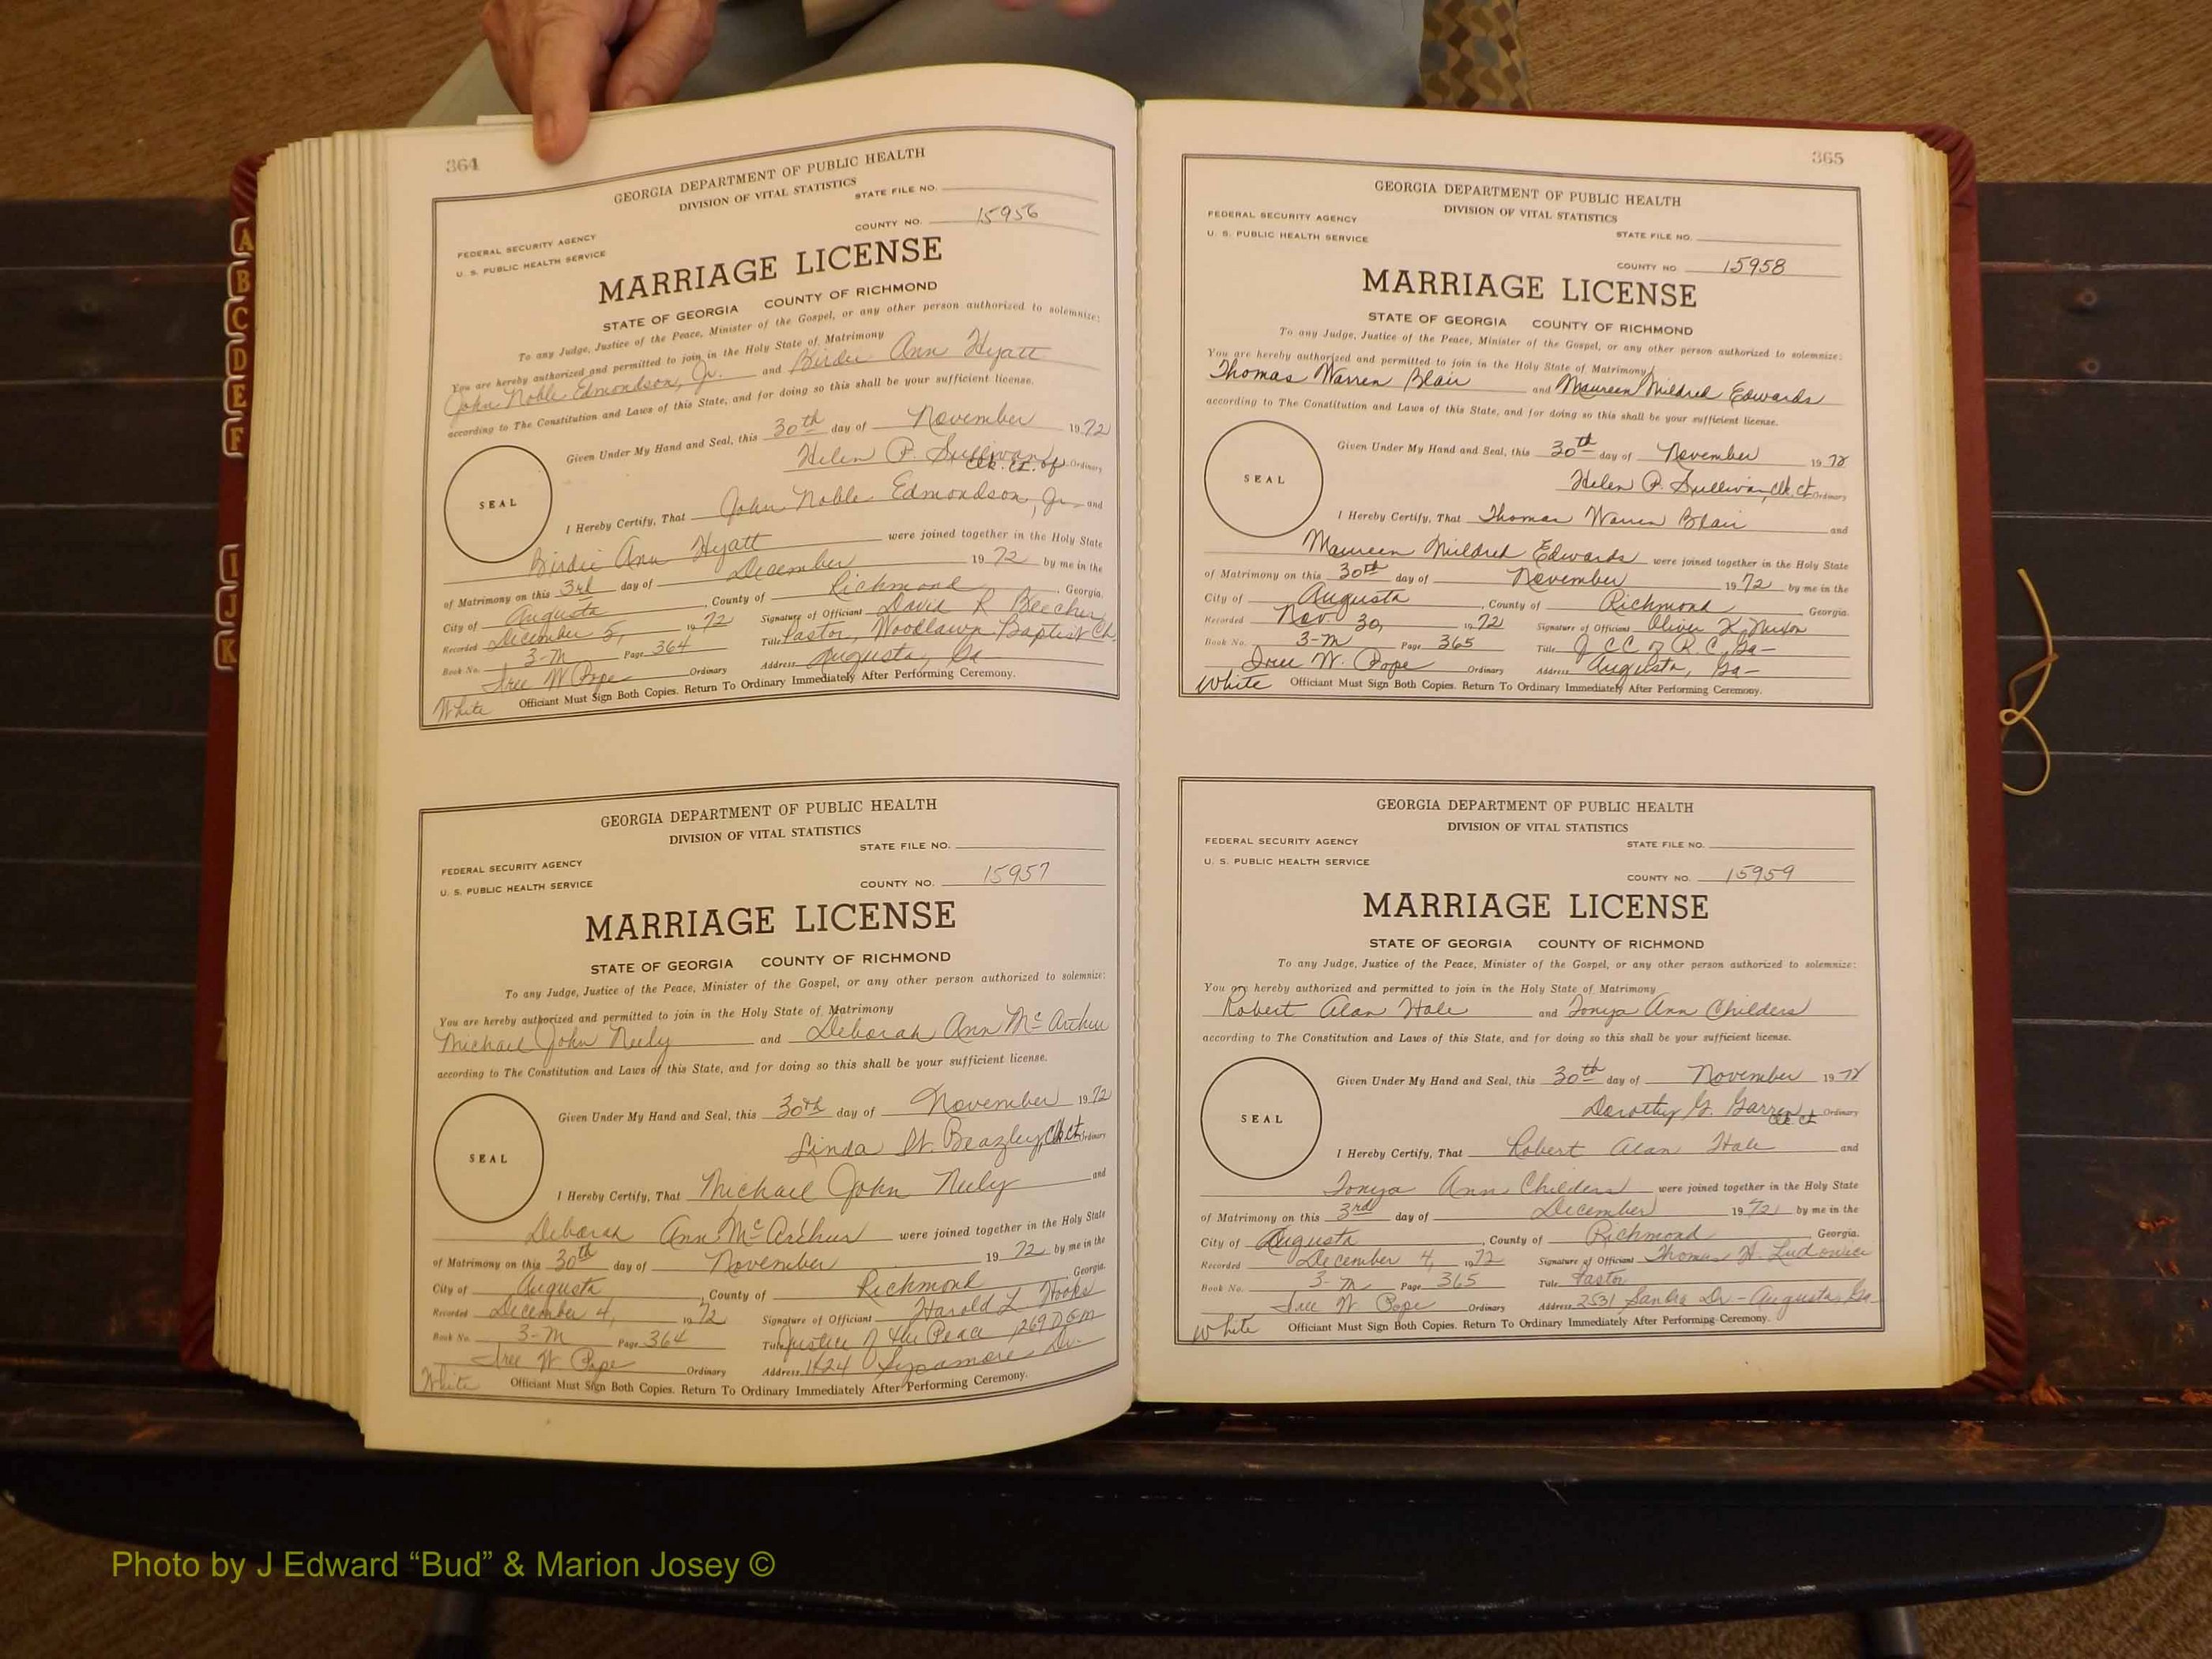 A
B
C
D
E
F
I
J
K
364
GEORGIA DEPARTMENT OF PUBLIC HEALTH
DIVISION OF VITAL STATISTICS
STATE FILE NO.
COUNTY NO. 15956
FEDERAL SECURITY AGENCY
U. S. PUBLIC HEALTH SERVICE
MARRIAGE LICENSE
STATE OF GEORGIA COUNTY OF RICHMOND
To any Judge, Justice of the Peace, Minister of the Gospel, or any other person authorized to solemnize:
You are hereby authorized and permitted to join in the Holy State of Matrimony
John Noble Edmondson, Jr. and Birdie Ann Hyatt
according to The Constitution and Laws of this State, and for doing so this shall be your sufficient license.
Given Under My Hand and Seal, this 30th day of November 1972
Helen P. Sullivan, Clk. Ct. of Ordinary
SEAL
I Hereby Certify, That John Noble Edmondson, Jr. and
Birdie Ann Hyatt were joined together in the Holy State
of Matrimony on this 3rd day of December 1972 by me in the
City of Augusta, County of Richmond, Georgia.
Recorded December 5, 1972 Signature of Officiant David R Beecher
Book No. 3-M Page 364 Title Pastor, Woodlawn Baptist Ch.
Iree W Pope Ordinary Address Augusta, Ga
White Officiant Must Sign Both Copies. Return To Ordinary Immediately After Performing Ceremony.
GEORGIA DEPARTMENT OF PUBLIC HEALTH
DIVISION OF VITAL STATISTICS
STATE FILE NO.
FEDERAL SECURITY AGENCY
U. S. PUBLIC HEALTH SERVICE
COUNTY NO. 15957
MARRIAGE LICENSE
STATE OF GEORGIA COUNTY OF RICHMOND
To any Judge, Justice of the Peace, Minister of the Gospel, or any other person authorized to solemnize:
You are hereby authorized and permitted to join in the Holy State of Matrimony
Michael John Neely and Deborah Ann McArthur
according to The Constitution and Laws of this State, and for doing so this shall be your sufficient license.
Given Under My Hand and Seal, this 30th day of November 1972
Linda W. Beazley, Clk Ct Ordinary
SEAL
I Hereby Certify, That Michael John Neely and
Deborah Ann McArthur were joined together in the Holy State
of Matrimony on this 30th day of November 1972 by me in the
City of Augusta, County of Richmond Georgia.
Recorded December 4, 1972 Signature of Officiant Harold L Hooks
Book No. 3-M Page 364 Title Justice of the Peace 1269 D GM
Iree W Pope Ordinary Address 1624 Sycamore Dr.
White Officiant Must Sign Both Copies. Return To Ordinary Immediately After Performing Ceremony.
365
GEORGIA DEPARTMENT OF PUBLIC HEALTH
DIVISION OF VITAL STATISTICS
FEDERAL SECURITY AGENCY
U. S. PUBLIC HEALTH SERVICE
STATE FILE NO.
COUNTY NO 15958
MARRIAGE LICENSE
STATE OF GEORGIA COUNTY OF RICHMOND
To any Judge, Justice of the Peace, Minister of the Gospel, or any other person authorized to solemnize:
You are hereby authorized and permitted to join in the Holy State of Matrimony
Thomas Warren Blair and Maureen Mildred Edwards
according to The Constitution and Laws of this State, and for doing so this shall be your sufficient license.
Given Under My Hand and Seal, this 30th day of November 1972
Helen P. Sullivan, Clk. Ct Ordinary
SEAL
I Hereby Certify, That Thomas Warren Blair and
Maureen Mildred Edwards were joined together in the Holy State
of Matrimony on this 30th day of November 1972 by me in the
City of Augusta, County of Richmond Georgia.
Recorded Nov. 30, 1972 Signature of Officiant Oliver K. Nixon
Book No. 3-M Page 365 Title J CC of R. C. Ga-
Iree W. Pope Ordinary Address Augusta, Ga-
White Officiant Must Sign Both Copies. Return To Ordinary Immediately After Performing Ceremony.
GEORGIA DEPARTMENT OF PUBLIC HEALTH
DIVISION OF VITAL STATISTICS
FEDERAL SECURITY AGENCY
U. S. PUBLIC HEALTH SERVICE
STATE FILE NO.
COUNTY NO. 15959
MARRIAGE LICENSE
STATE OF GEORGIA COUNTY OF RICHMOND
To any Judge, Justice of the Peace, Minister of the Gospel, or any other person authorized to solemnize:
You are hereby authorized and permitted to join in the Holy State of Matrimony
Robert Alan Hale and Tonya Ann Childers
according to The Constitution and Laws of this State, and for doing so this shall be your sufficient license.
Given Under My Hand and Seal, this 30th day of November 1972
Dorothy G. Garren Clk Ct Ordinary
SEAL
I Hereby Certify, That Robert Alan Hale and
Tonya Ann Childers were joined together in the Holy State
of Matrimony on this 3rd day of December 1972 by me in the
City of Augusta, County of Richmond Georgia.
Recorded December 4, 1972 Signature of Officiant Thomas H.
Book No. 3-M Page 365 Title Pastor
Iree W. Pope Ordinary Address 2531 Sandra Dr - Augusta, Ga
White Officiant Must Sign Both Copies. Return To Ordinary Immediately After Performing Ceremony.
Photo by J Edward “Bud” & Marion Josey ©